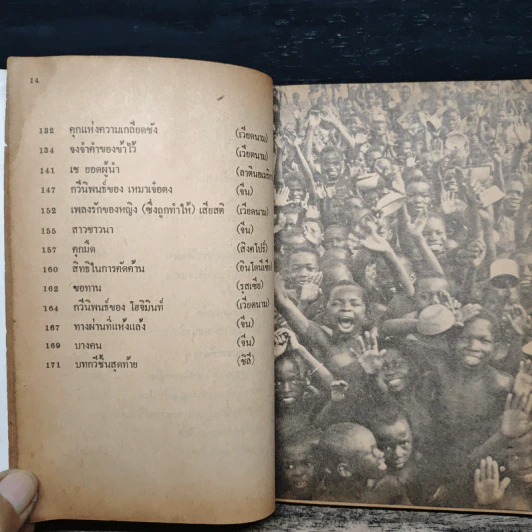 14
132 คุกแห่งความเกลียดชัง (เวียดนาม)
134 จงจำคำของข้าไว้ (เวียดนาม)
141 เช ยอดผู้นำ (ลาตินอเมริกา)
147 กวีนิพนธ์ของ เหมาเจ๋อตง (จีน)
152 เพลงรักของหญิง (ซึ่งถูกทำให้) เสียสติ (เวียดนาม)
155 สาวชาวนา (จีน)
157 คุกมืด (สิงคโปร์)
160 สิทธิในการคัดค้าน (อินโดนีเซีย)
162 ขอทาน (รุสเซีย)
164 กวีนิพนธ์ของ โฮจิมินห์ (เวียดนาม)
167 ทางผ่านที่แห้งแล้ง (จีน)
169 บางคน (จีน)
171 บทกวีชิ้นสุดท้าย (ชิลี)